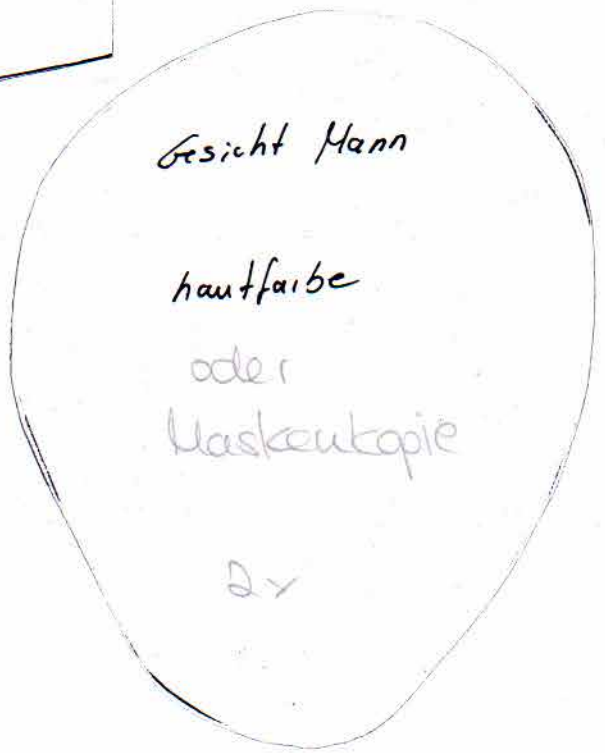 Gesicht Mann
hautfarbe
oder
Maskenkopie
2x